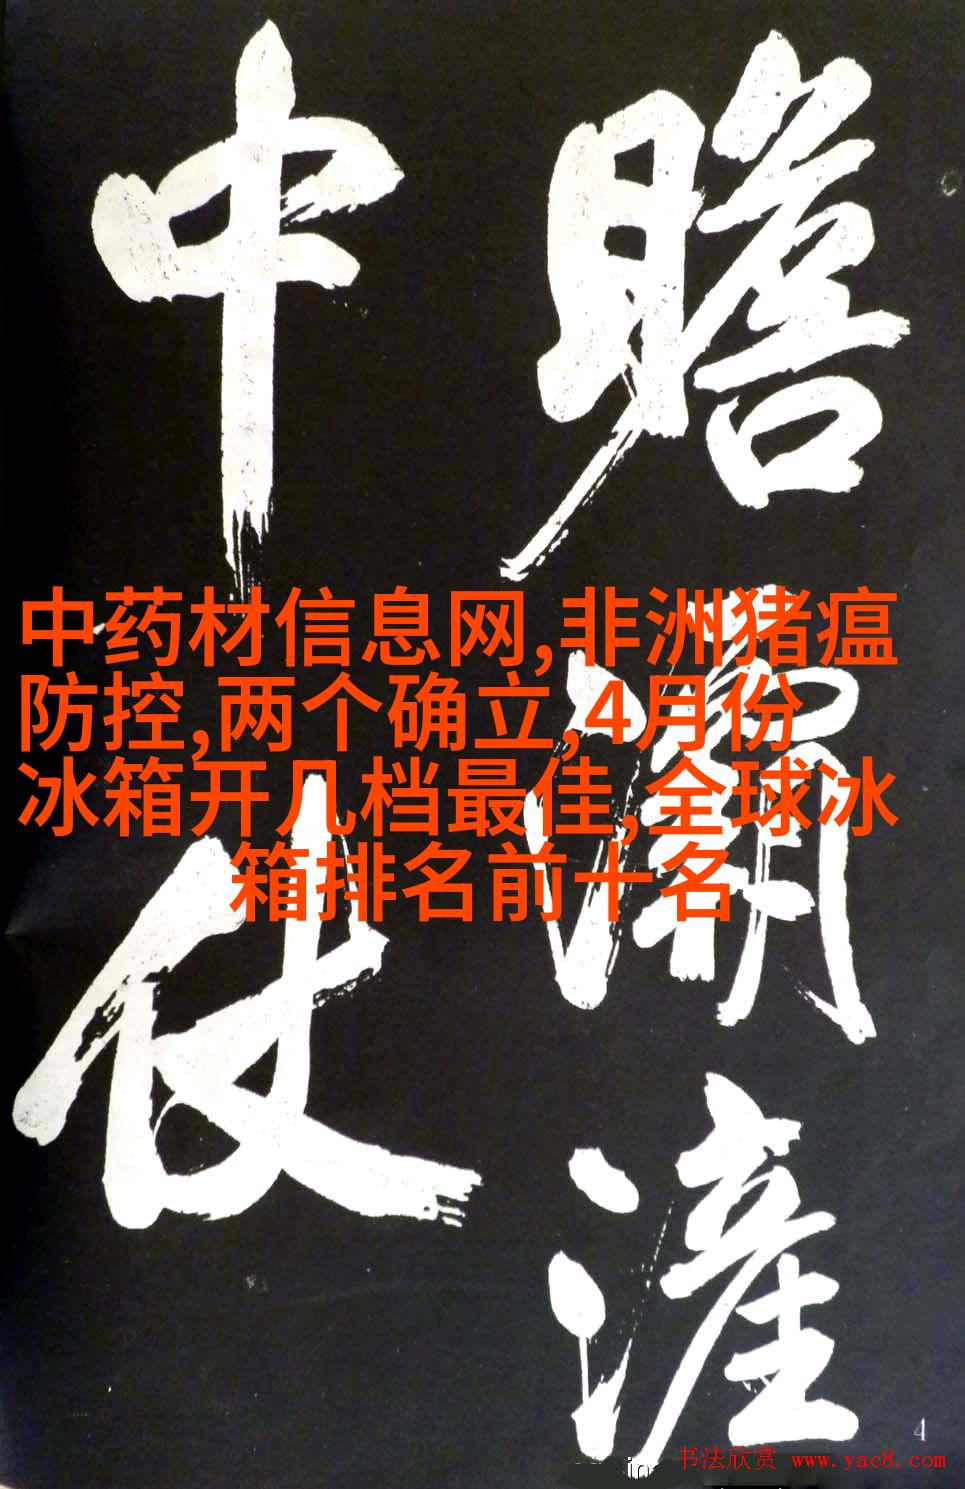 瞻灞滻
中仗
中药材信息网,非洲猪瘟
防控,两个确立,4月份
冰箱开几档最佳,全球冰
箱排名前十名
4
书法欣赏 www.yac8.com